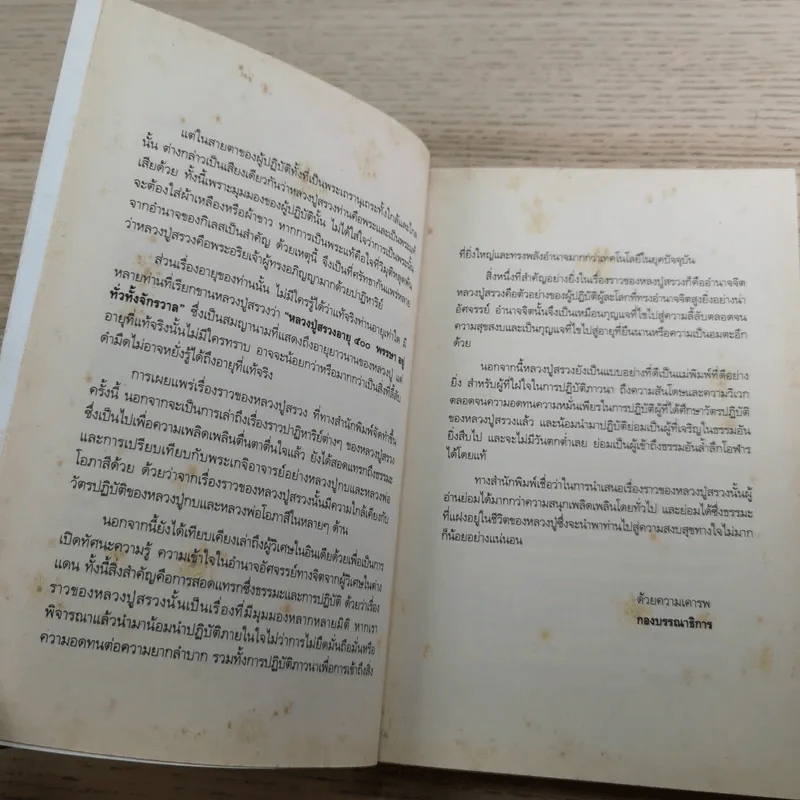 แต่ในสายตาของผู้ปฏิบัติทั้งที่เป็นพระเถรานุเถระทั้งใกล้และไกล
นั้น ต่างกล่าวเป็นเสียงเดียวกันว่าหลวงปู่สรวงท่านคือพระและเป็นพระแท้
เสียด้วย ทั้งนี้เพราะมุมมองของผู้ปฏิบัตินั้น ไม่ได้ใส่ใจว่าการเป็นพระนั้น
จะต้องใส่ผ้าเหลืองหรือผ้าขาว หากการเป็นพระแท้คือใจที่วิมุติหลุดพ้น
จากอำนาจของกิเลสเป็นสำคัญ ด้วยเหตุนี้ จึงเป็นที่ศรัทธากันแพร่หลาย
ว่าหลวงปู่สรวงคือพระอริยเจ้าผู้ทรงอภิญญามากด้วยปาฏิหาริย์
ส่วนเรื่องอายุของท่านนั้น ไม่มีใครรู้ได้ว่าแท้จริงท่านอายุเท่าใด มี
หลายท่านที่เรียกขานหลวงปู่สรวงว่า "หลวงปู่สรวงอายุ ๕๐๐ พรรษา อยู่
ทั่วทั้งจักรวาล" ซึ่งเป็นสมญานามที่แสดงถึงอายุยาวนานของหลวงปู่ แต่
อายุที่แท้จริงนั้นไม่มีใครทราบ อาจจะน้อยกว่าหรือมากกว่าเป็นสิ่งที่ลี้ลับ
ดำมืดไม่อาจหยั่งรู้ได้ถึงอายุที่แท้จริง
การเผยแพร่เรื่องราวของหลวงปู่สรวง ที่ทางสำนักพิมพ์จัดทำขึ้น
ครั้งนี้ นอกจากจะเป็นการเล่าถึงเรื่องราวปาฏิหาริย์ต่างๆ ของหลวงปู่สรวง
ซึ่งเป็นไปเพื่อความเพลิดเพลินตื่นตาตื่นใจแล้ว ยังได้สอดแทรกถึงธรรมะ
และการเปรียบเทียบกับพระเกจิอาจารย์อย่างหลวงปู่กบและหลวงพ่อ
โอภาสีด้วย ด้วยว่าจากเรื่องราวของหลวงปู่สรวงนั้นมีความใกล้เคียงกับ
วัตรปฏิบัติของหลวงปู่กบและหลวงพ่อโอภาสีในหลายๆ ด้าน
นอกจากนี้ยังได้เทียบเคียงเล่าถึงผู้วิเศษในอินเดียด้วยเพื่อเป็นการ
เปิดทัศนะความรู้ ความเข้าใจในอำนาจอัศจรรย์ทางจิตจากผู้วิเศษในต่าง
แดน ทั้งนี้สิ่งสำคัญคือการสอดแทรกซึ่งธรรมะและการปฏิบัติ ด้วยว่าเรื่อง
ราวของหลวงปู่สรวงนั้นเป็นเรื่องที่มีมุมมองหลากหลายมิติ หากเรา
พิจารณาแล้วนำมาน้อมนำปฏิบัติภายในใจไม่ว่าการไม่ยึดมั่นถือมั่นหรือ
ความอดทนต่อความยากลำบาก รวมทั้งการปฏิบัติภาวนาเพื่อการเข้าถึงสิ่ง
ที่ยิ่งใหญ่และทรงพลังอำนาจมากกว่าเทคโนโลยีในยุคปัจจุบัน
สิ่งหนึ่งที่สำคัญอย่างยิ่งในเรื่องราวของหลวงปู่สรวงก็คืออำนาจจิต
หลวงปู่สรวงคือตัวอย่างของผู้ปฏิบัติผู้ละโลกที่ทรงอำนาจจิตสูงยิ่งอย่างน่า
อัศจรรย์ อำนาจจิตนั้นจึงเป็นเหมือนกุญแจที่ไขไปสู่ความลี้ลับตลอดจน
ความสุขสงบและเป็นกุญแจที่ไขไปสู่อายุที่ยืนนานหรือความเป็นอมตะอีก
ด้วย
นอกจากนี้หลวงปู่สรวงยังเป็นแบบอย่างที่ดีเป็นแม่พิมพ์ที่ดีอย่าง
ยิ่ง สำหรับผู้ที่ใฝ่ใจในการปฏิบัติภาวนา ถึงความสันโดษและความวิเวก
ตลอดจนความอดทนความหมั่นเพียรในการปฏิบัติผู้ที่ได้ศึกษาวัตรปฏิบัติ
ของหลวงปู่สรวงแล้ว และน้อมนำมาปฏิบัติย่อมเป็นผู้ที่เจริญในธรรมอัน
ยิ่งสืบไป และจะไม่มีวันตกต่ำเลย ย่อมเป็นผู้เข้าถึงธรรมอันล้ำลึกโอฬาร
ได้โดยแท้
ทางสำนักพิมพ์เชื่อว่าในการนำเสนอเรื่องราวของหลวงปู่สรวงนั้นผู้
อ่านย่อมได้มากกว่าความสนุกเพลิดเพลินโดยทั่วไป และย่อมได้ซึ่งธรรมะ
ที่แฝงอยู่ในชีวิตของหลวงปู่ซึ่งจะนำพาท่านไปสู่ความสงบสุขทางใจไม่มาก
ก็น้อยอย่างแน่นอน
ด้วยความเคารพ
กองบรรณาธิการ